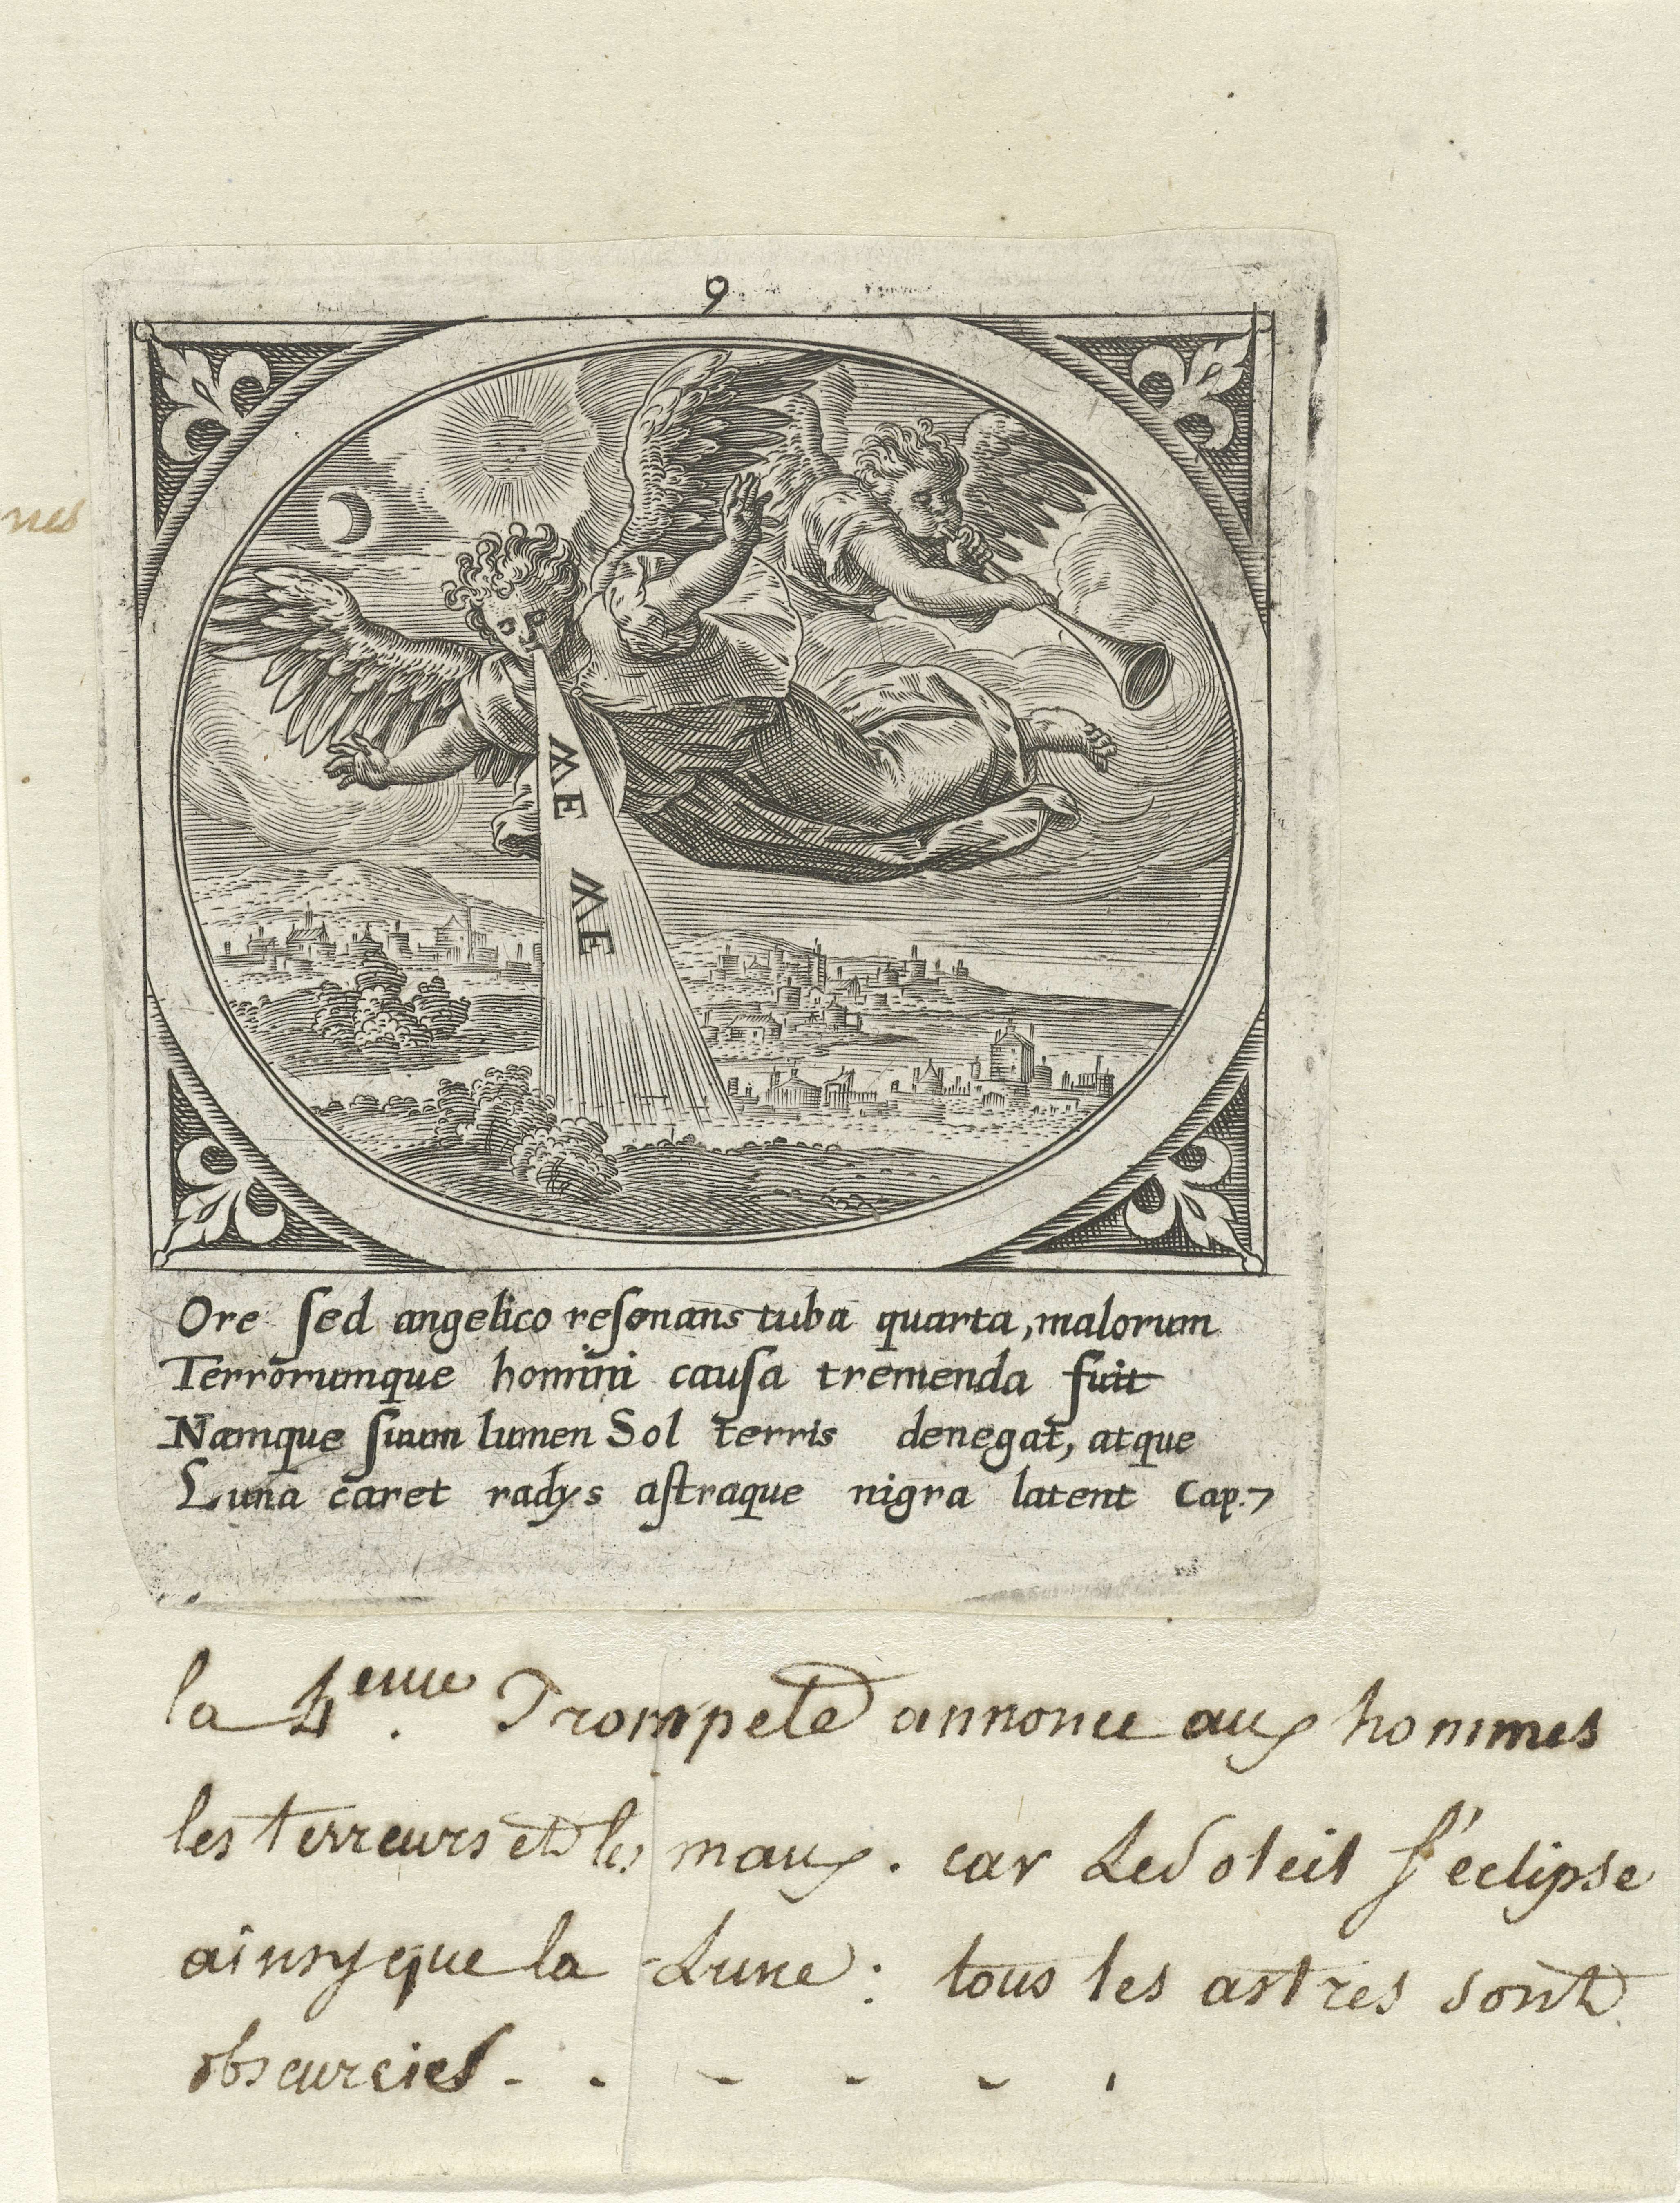 9
nes
VVE
VVE
Ore ſed angelico reſonans tuba quarta, malorum
Terrorumque homini cauſa tremenda fuit
Namque ſuum lumen Sol terris denegat, atque
Luna caret radys aſtraque nigra latent Cap. 7
la 4.eme Trompete annonce aux hommes
les terreurs et les maux. car Le Soleil ſ'eclipse
ainsy que la Lune : tous les astres sont
obscurcies - . - - - .